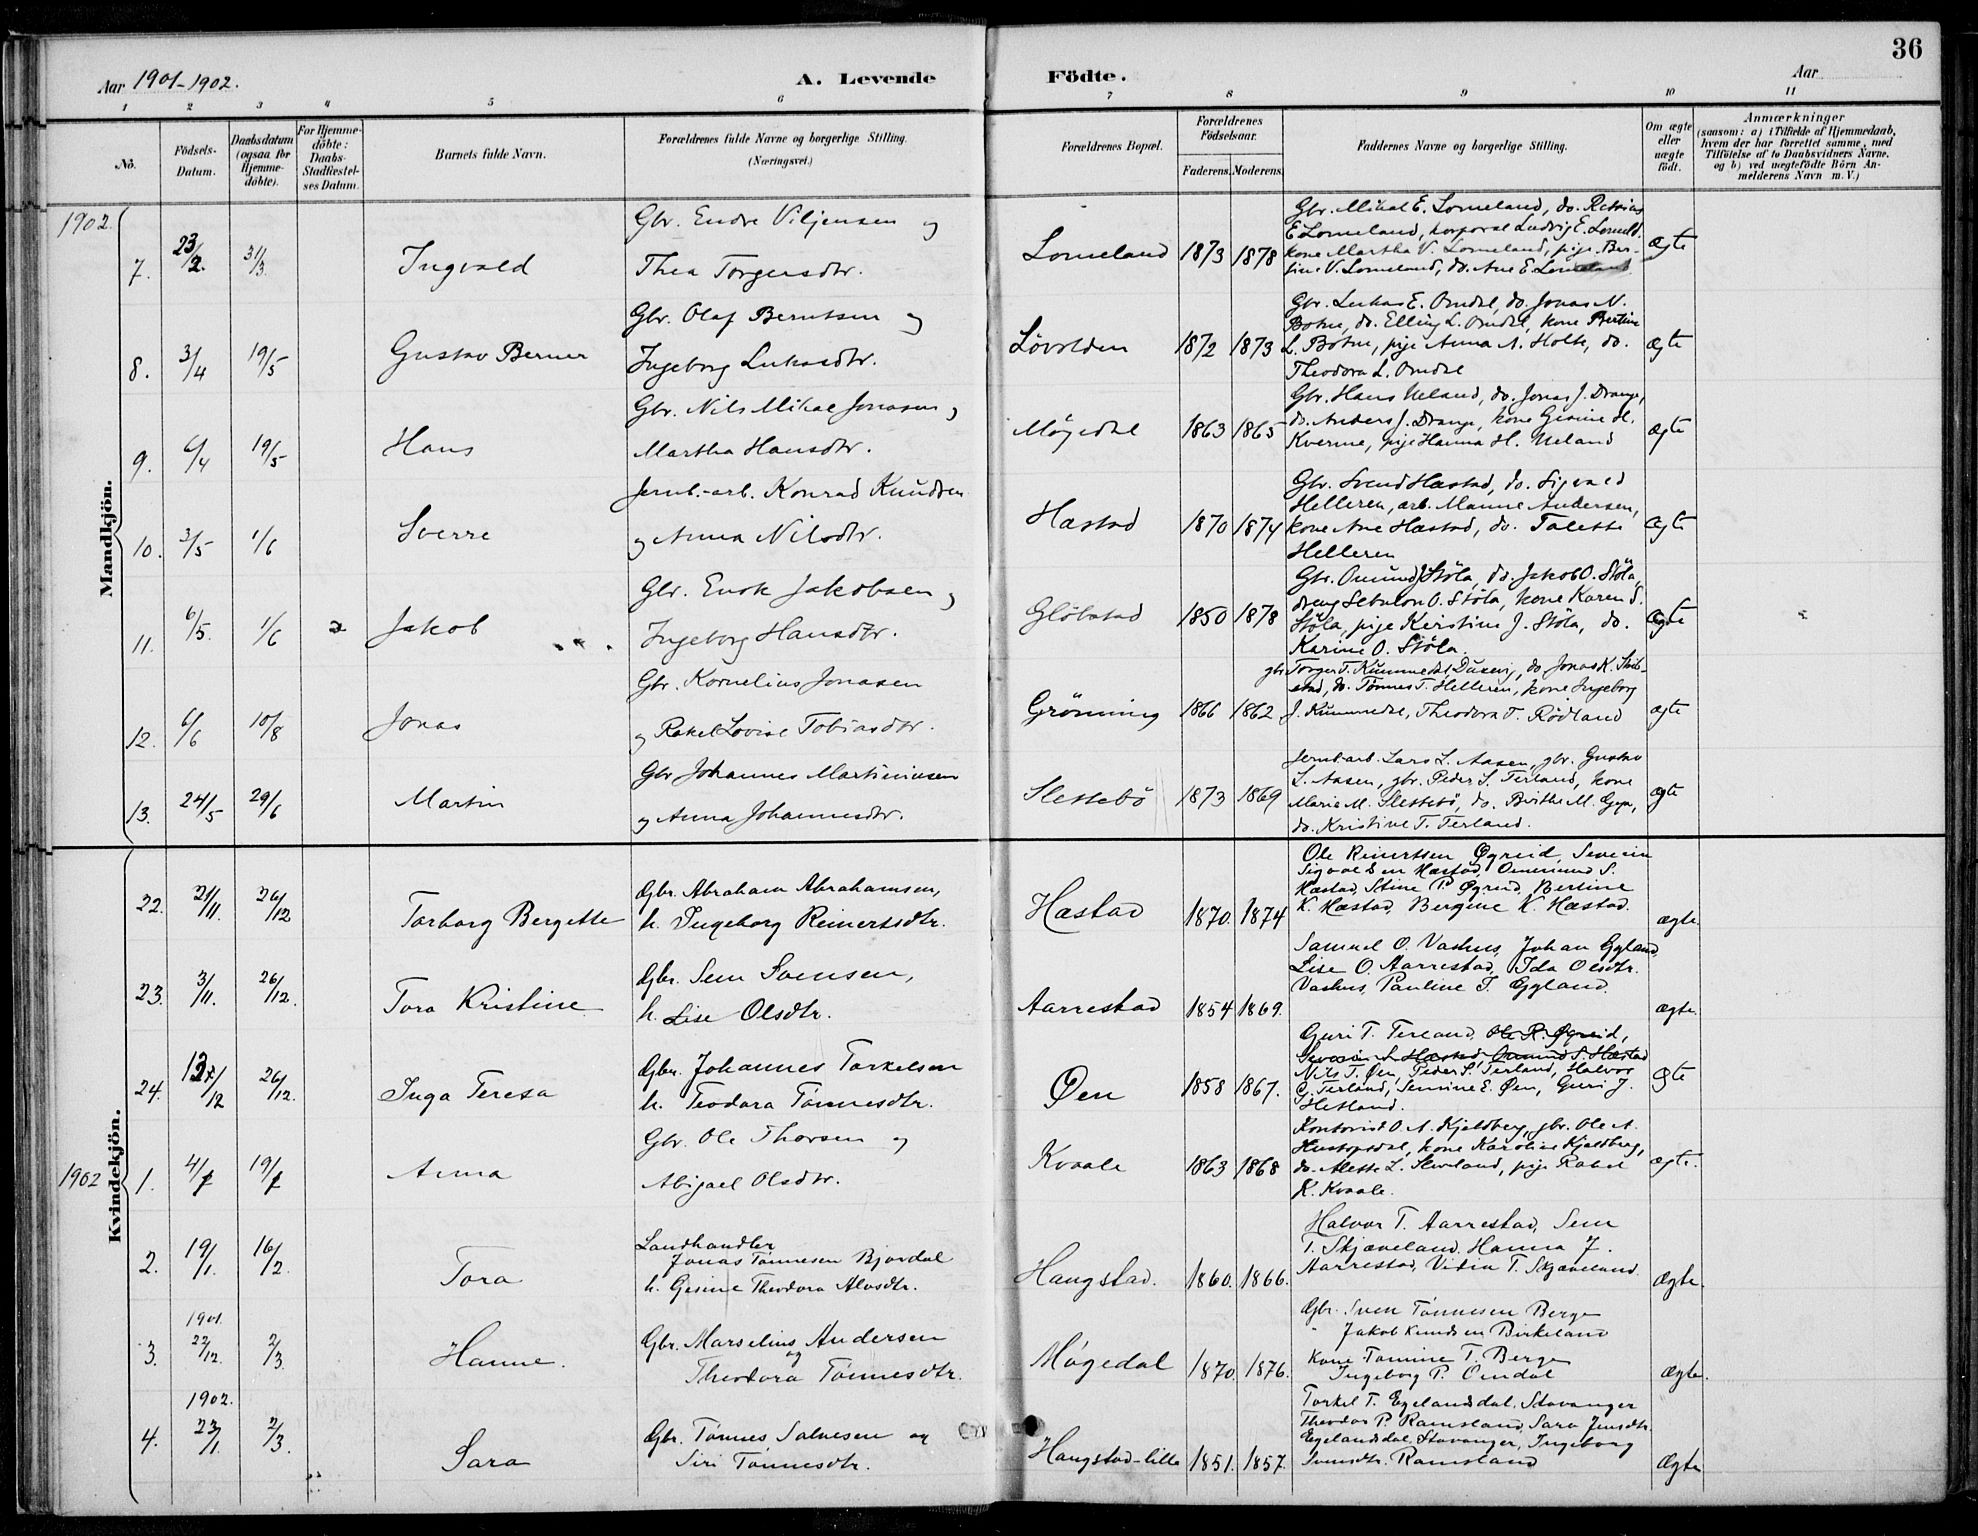 36
Aar 1901-1902.
A. Levende Födte.
Aar
1 2 3 4 5 6 7 8 9 10 11
No.
Födsels-Datum.
Daabsdatum (ogsaa for Hjemme-döbte).
For Hjemme-döbte: Daabs-Stadfæstel-ses Datum.
Barnets fulde Navn.
Forældrenes fulde Navne og borgerlige Stilling. (Næringsvei.)
Forældrenes Bopæl.
Forældrenes Födselsaar.
Faderens. Moderens.
Faddernes Navne og borgerlige Stilling.
Om ægte eller uægte födt.
Anmærkninger
(saasom: a) i Tilfælde af Hjemmedaab,
hvem der har forrettet samme, med
Tilföielse af to Daabsvidners Navne,
og b) ved uægtefödte Börn An-
melderens Navn m. V.)
Mandkjön.
1902.
7. 23/2. 31/3. Ingvald
Gbr. Endre Viljensen og
Thea Torgersdtr.
Lomeland 1873 1878
Gbr. Mikal E. Lomeland, do.
E Lomeland, korporal Ludvig E. Lomeld.
kone Martha V. Lomeland, pije Ber-
sine V. Lomeland, do. Ane E Lomeland
ægte
8. 3/4 19/5 Gustav Berner
Gbr. Olaf Berntsen og
Ingeborg Lukasdtr.
Lövolden 1872 1873
Gbr. Lukas E. Omdal, do. Jonas N.
Botne, do. Elling L. Omdal, kone Bertine
L. Botne, pije Anna N. Holte, do.
Theodora L. Omdal
ægte
9. 6/4 19/5 Hans
Gbr. Nils Mikal Jonasen og
Martha Hansdtr.
Mögedal 1863 1865
Gbr. Hans Ueland, do. Jonas J. Drange,
do. Anders J. Drange, kone Gesine H.
Kverme, pije Hanna H. Ueland
ægte
10. 3/5 1/6 Sverre
Jernb.-arb. Konrad Knudsen
og Anna Nilsdtr.
Hæstad 1870 1874
Gbr. Svend Hæstad, do. Sigvald
Helleren, arb. Manne Andersen,
kone Ane Hæstad, do. Talette
Helleren
ægte
11. 6/5. 1/6 Jakob
Gbr. Enok Jakobsen og
Ingeborg Hansdtr.
Glöbstad 1850 1878
Gbr. Omund J Stöla, do. Jakob O. Stöla,
dreng Sebulon O. Stöla, kone Karen S.
Stöla, pije Kirstine J. Stöla, do.
Karine O. Stöla.
ægte
12. 6/6 10/8 Jonas
Gbr. Kornelius Jonasen
og Rakel Lovise Tobiasdtr.
Grönning 1866 1862
gbr Torger T. Kummedal, do. Jonas K.
do. Tönnes T. Helleren, kone Ingeborg
J. Kummedal, Theodora T. Rödland
ægte
13. 24/5 29/6 Martin
Gbr Johannes Martiniusen
og Anna Johannesdtr.
Slettebö 1873 1869
Jernb-arb. Lars L. Aasen, gbr. Gustav
L. Aasen, gbr. Peder S. Terland, kone
Marie M. Slettebö, do. Birthe M. Gya,
do. Kristine T. Terland.
ægte
Kvindekjön.
22. 21/11. 26/12 Torborg Bergette
Gbr. Abraham Abrahamsen,
h. Ingeborg Reinertsdtr.
Hæstad 1870. 1874
Ole Reinertsen Øgreid, Severin
Sigvaldsen Hæstad, Omund S.
Hæstad, Stine P. Øgreid, Bertine
K. Hæstad, Bergine K. Hæstad.
ægte.
23. 3/11. 26/12. Tora Kristine
Gbr. Sem Svensen,
h. Lise Olsdtr.
Aarrestad 1854 1869.
Samuel O. Vashus, Johan Gyland,
Lise O. Aarrestad, Ida Olsdtr.
Vashus, Pauline T. Gyland.
ægte.
24. 12/12 26/12. Inga Teresa
Gbr. Johannes Torkelsen
h. Teodora Tönnesdtr.
Øen 1858 1867.
Guri T. Terland, Ole R. Øgreid,
Severin S. Hæstad, Omund S. Hæstad
Nils T. Øen, Peder S. Terland, Halvor
G. Terland, Semine E. Øen, Guri J.
Hetland.
ægte
1902 1. 4/1 19/1 Anna
Gbr. Ole Thorsen og
Abigael Olsdtr.
Kvaale 1863 1868
Kontorist O. A. Kjeldberg, gbr. Ole A.
kone Karoline Kjeldberg,
do. Alette L. Sleveland, pije Rakel
K. Kvaale.
ægte.
2. 19/1. 16/2. Tora
Landhandler
Jonas Tönnesen Bjordal
h. Gesine Theodora Alvsdtr.
Haugstad. 1860. 1866.
Halvor T. Aarrestad, Sem
T. Skjæveland, Hanna J.
Aarrestad, Vidia T. Skjæveland.
ægte.
1901.
3. 22/12. 2/3. Hanne.
Gbr. Marselius Andersen
og
Theodora Tönnesdtr.
Mögedal 1870. 1876.
Gbr. Sven Tönnesen Berge
" Jakob Knudsen Birkeland
Kone Tomine T. Berge
Ingeborg P. Omdal
ægte.
1902.
4. 23/1. 2/3. Sara
Gbr. Tönnes Salvesen og
Siri Tönnesdtr.
Haugstad-lille 1851. 1857.
Torkel T. Egelandsdal, Stavanger
Theodor P. Ramsland, Sara Jensdtr.
Egelandsdal, Stavanger, Ingeborg
Svensdtr. Ramsland
ægte